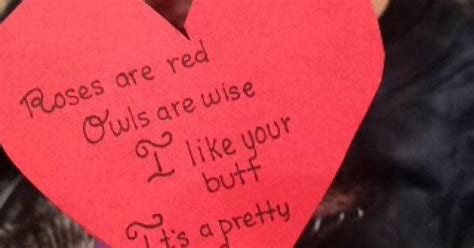 Roses are red
Owls are wise
I like your
butt
It's a pretty